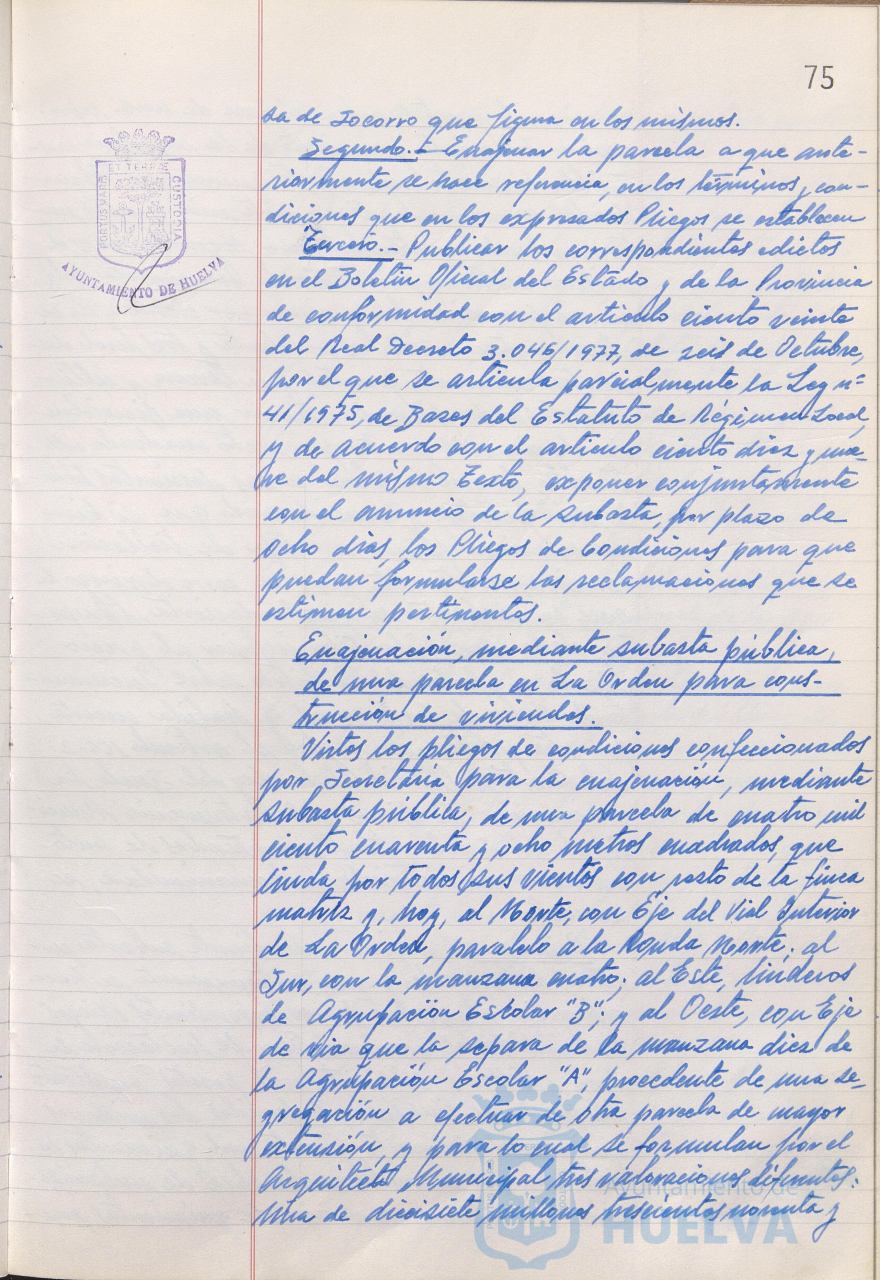 75
sa de Socorro que figura en los mismos.
Segundo.- Enajenar la parcela a que ante-
riormente se hace referencia, en los términos y con-
diciones que en los expresados Pliegos se establecen
Tercero.- Publicar los correspondientes edictos
en el Boletín Oficial del Estado y de la Provincia
de conformidad con el artículo ciento veinte
del Real Decreto 3.046/1977, de seis de Octubre,
por el que se articula parcialmente la Ley nº
41/1975, de Bases del Estatuto de Régimen Local,
y de acuerdo con el artículo ciento diez y nue-
ve del mismo Texto, exponer conjuntamente
con el anuncio de la subasta, por plazo de
ocho días, los Pliegos de Condiciones para que
puedan formularse las reclamaciones que se
estimen pertinentes.
Enajenación, mediante subasta pública,
de una parcela en La Orden para cons-
trucción de viviendas.
Vistos los pliegos de condiciones confeccionados
por Secretaría para la enajenación, mediante
subasta pública, de una parcela de cuatro mil
ciento cuarenta y ocho metros cuadrados, que
linda por todos sus vientos con resto de la finca
matriz y, hoy, al Norte, con Eje del Vial Interior
de La Orden, paralelo a la Ronda Norte; al
Sur, con la manzana cuatro; al Este, linderos
de Agrupación Escolar "B"; y al Oeste, con Eje
de vía que la separa de la manzana diez de
la Agrupación Escolar "A", procedente de una se-
gregación a efectuar de otra parcela de mayor
extensión, y para lo cual se formulan por el
Arquitecto Municipal tres valoraciones diferentes:
Una de diecisiete millones trescientos noventa y
PORTUS MARIS
ET TERRAE
CUSTODIA
AYUNTAMIENTO DE HUELVA
Ayuntamiento de
HUELVA